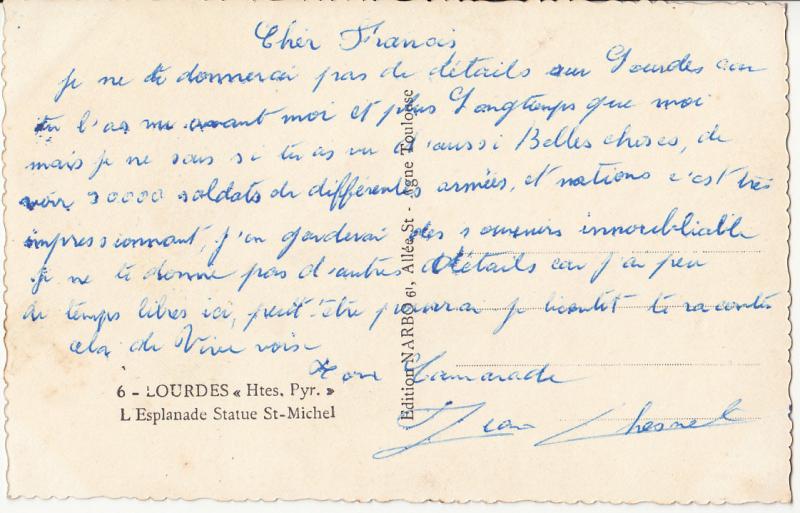 Cher Francis
Je ne te donnerai pas de détails sur Lourdes car
tu l'as vu avant moi et plus Longtemps que moi
mais je ne sais si tu as vu d'aussi Belles choses, de
voir 30000 soldats de différentes armées, et nations c'est très
impressionnant, j'en garderai des souvenirs innoubliable
je ne te donne pas d'autres détails car j'ai peu
de temps libres ici, peut-être pourrai je bientot te raconter
cela de Vive voix
Ton Camarade
Jean Chesnel
6 - LOURDES « Htes. Pyr. »
L Esplanade Statue St-Michel
Edition NARBO 61, Allée St - Agne Toulouse